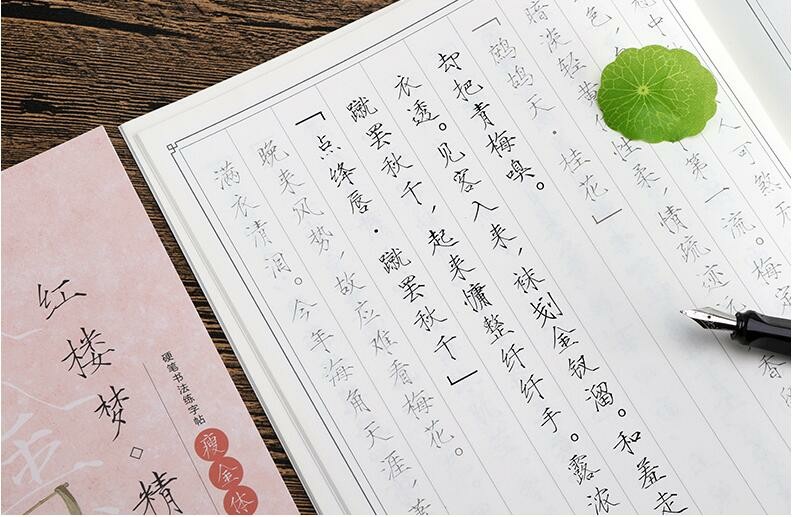 满衣清泪。今年海角天涯，萧
晚来风势，故应难看梅花。
「点绛唇·蹴罢秋千」
蹴罢秋千，起来慵整纤纤手。露浓
衣透。见客入来，袜刬金钗溜。和羞走
却把青梅嗅。
「鹧鸪天·桂花」
暗淡轻黄 性柔，情疏迹远 香留
色， 第一流。梅定
中 人可煞无
红楼梦·精
硬笔书法练字帖
瘦金体